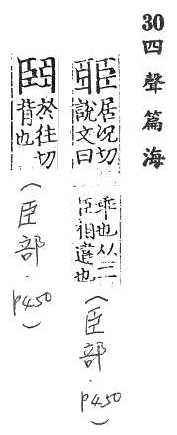 30 四聲篇海
臦 居況切
說文曰
乖也从二
臣相違也
(臣部.p450)
於往切
背也
(臣部.p450)